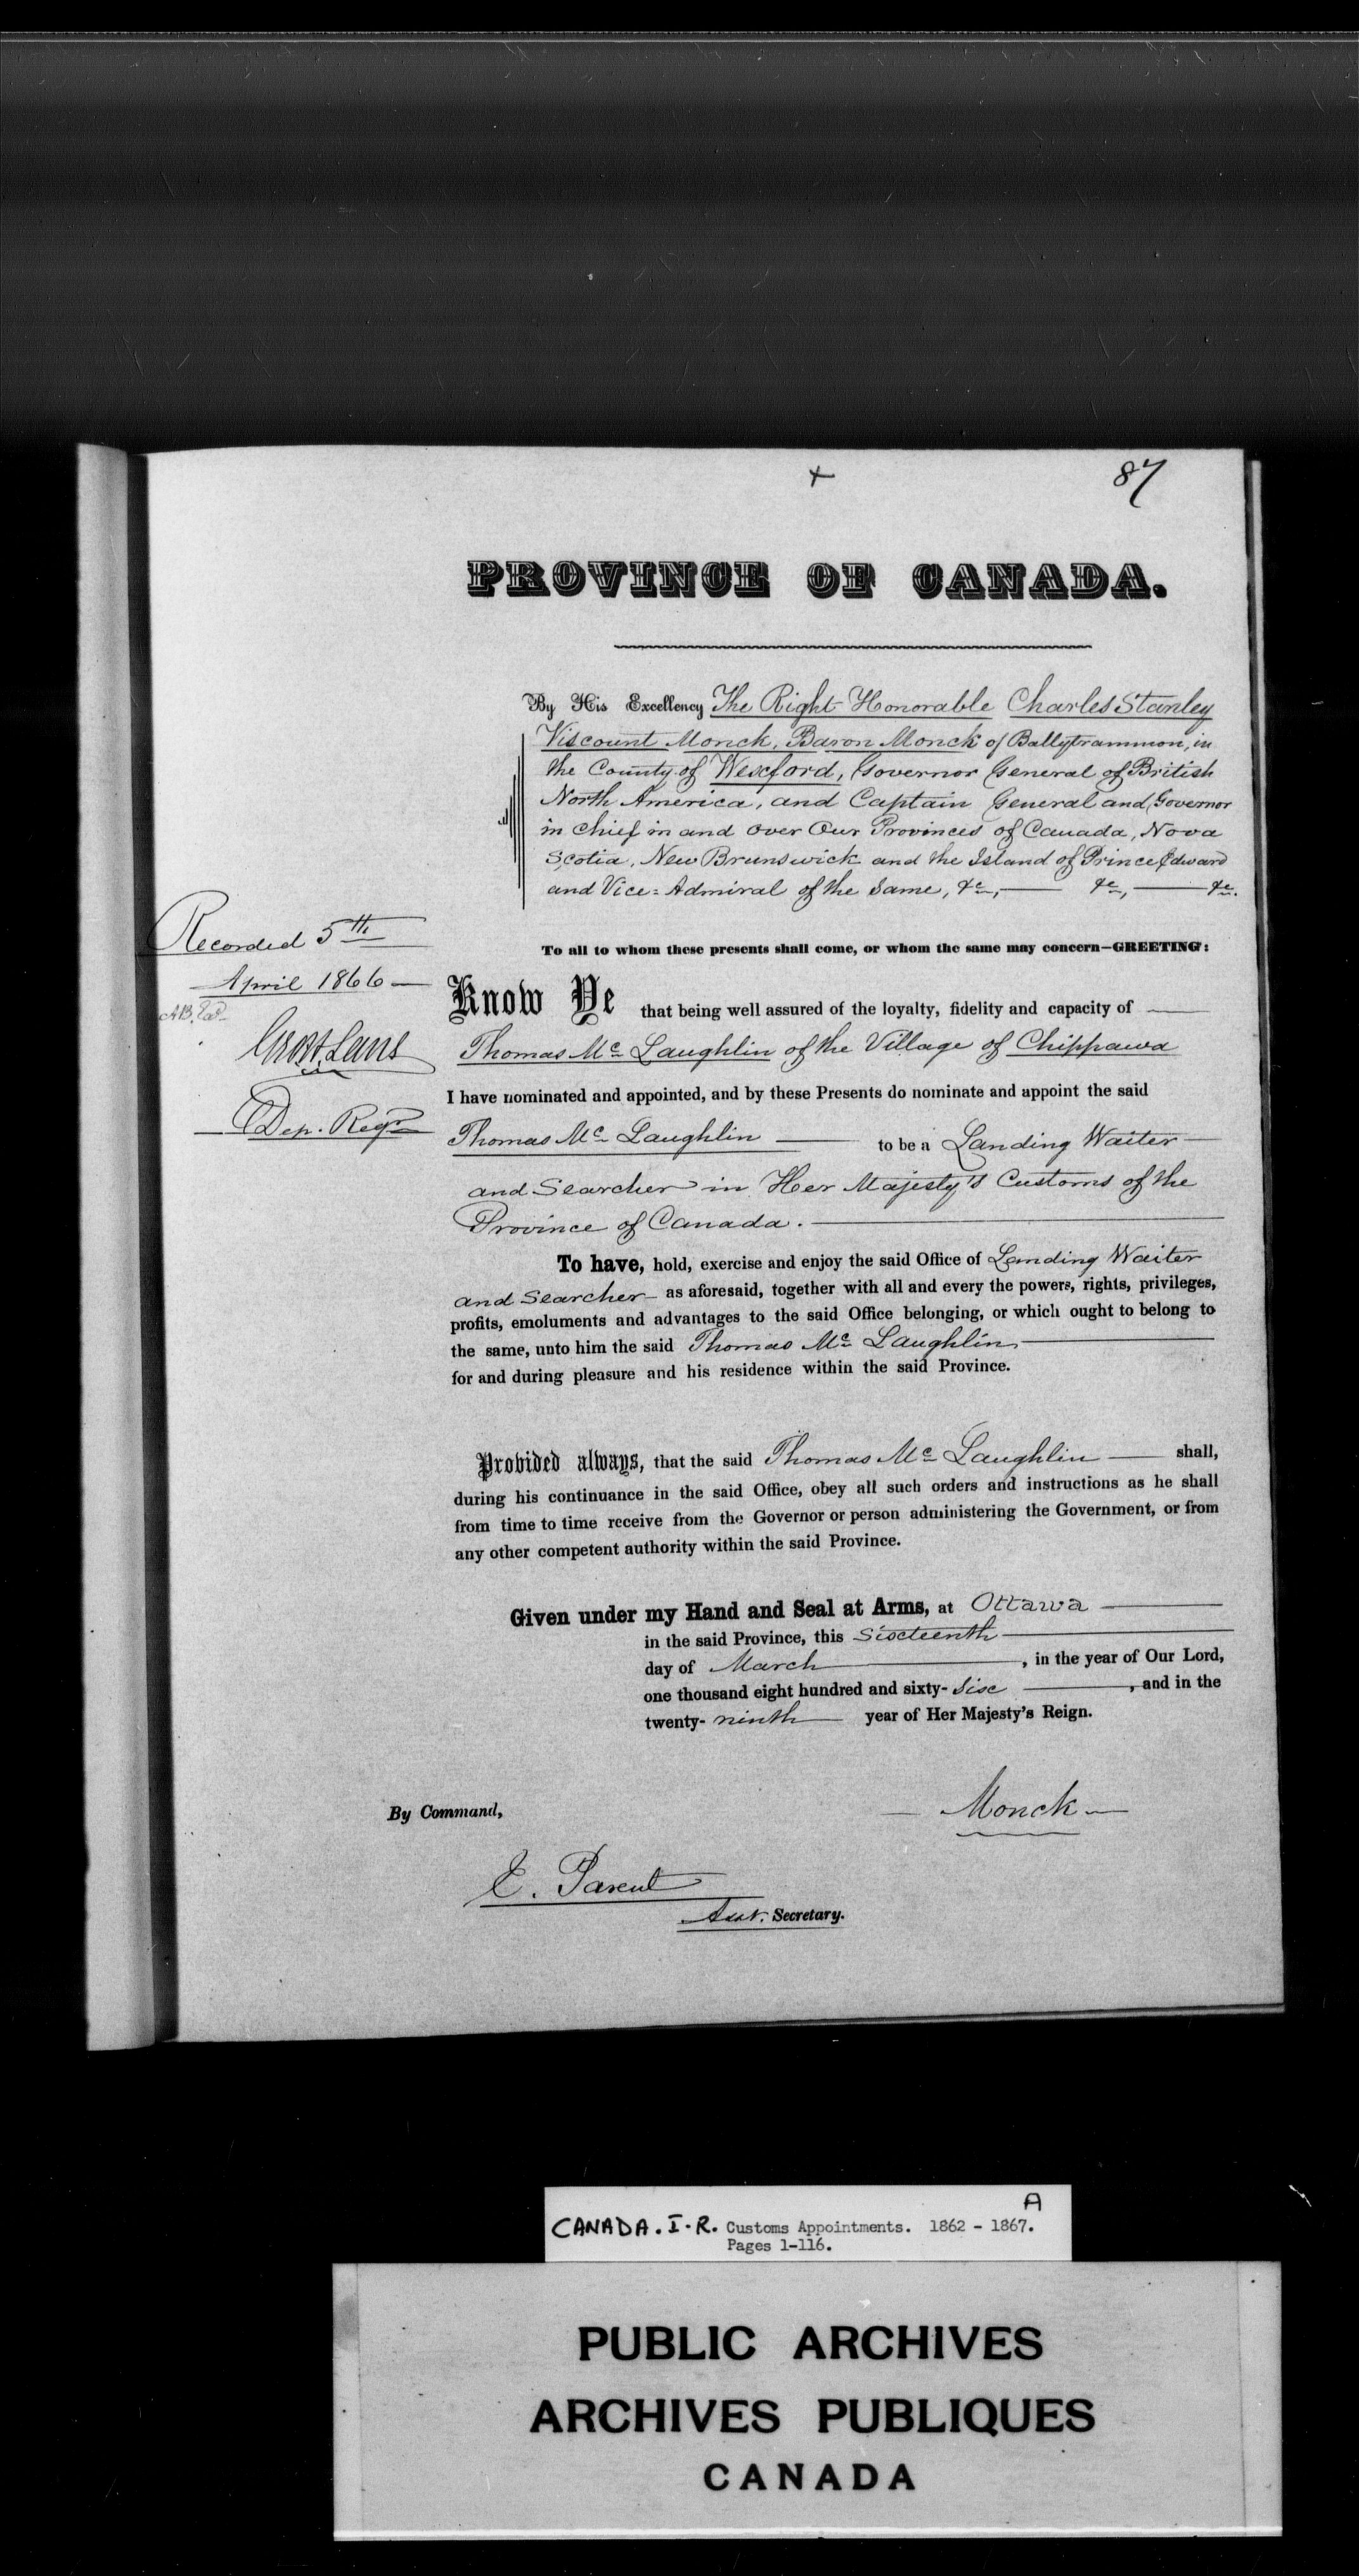 + 87
PROVINCE OF CANADA.
By His Excellency The Right Honorable Charles Stanley
Viscount Monck, Baron Monck of Ballytrammon, in
the County of Wexford, Governor General of British
North America, and Captain General and Governor
in Chief in and over Our Provinces of Canada, Nova
Scotia, New Brunswick and the Island of Prince Edward
and Vice-Admiral of the same, &c, &c, &c.
To all to whom these presents shall come, or whom the same may concern—GREETING:
Recorded 5th
April 1866
Dep. Regr
Know Ye that being well assured of the loyalty, fidelity and capacity of
Thomas Mc Laughlin of the Village of Chippawa
I have nominated and appointed, and by these Presents do nominate and appoint the said
Thomas Mc Laughlin to be a Landing Waiter
and Searcher in Her Majesty's Customs of the
Province of Canada.
To have, hold, exercise and enjoy the said Office of Landing Waiter
and Searcher as aforesaid, together with all and every the powers, rights, privileges,
profits, emoluments and advantages to the said Office belonging, or which ought to belong to
the same, unto him the said Thomas Mc Laughlin
for and during pleasure and his residence within the said Province.
Provided always, that the said Thomas Mc Laughlin shall,
during his continuance in the said Office, obey all such orders and instructions as he shall
from time to time receive from the Governor or person administering the Government, or from
any other competent authority within the said Province.
Given under my Hand and Seal at Arms, at Ottawa
in the said Province, this Sixteenth
day of March, in the year of Our Lord,
one thousand eight hundred and sixty-six, and in the
twenty-ninth year of Her Majesty's Reign.
By Command,
Monck
E. Parent
Asst. Secretary.
A
CANADA. I.R. Customs Appointments. 1862 - 1867.
Pages 1-116.
PUBLIC ARCHIVES
ARCHIVES PUBLIQUES
CANADA